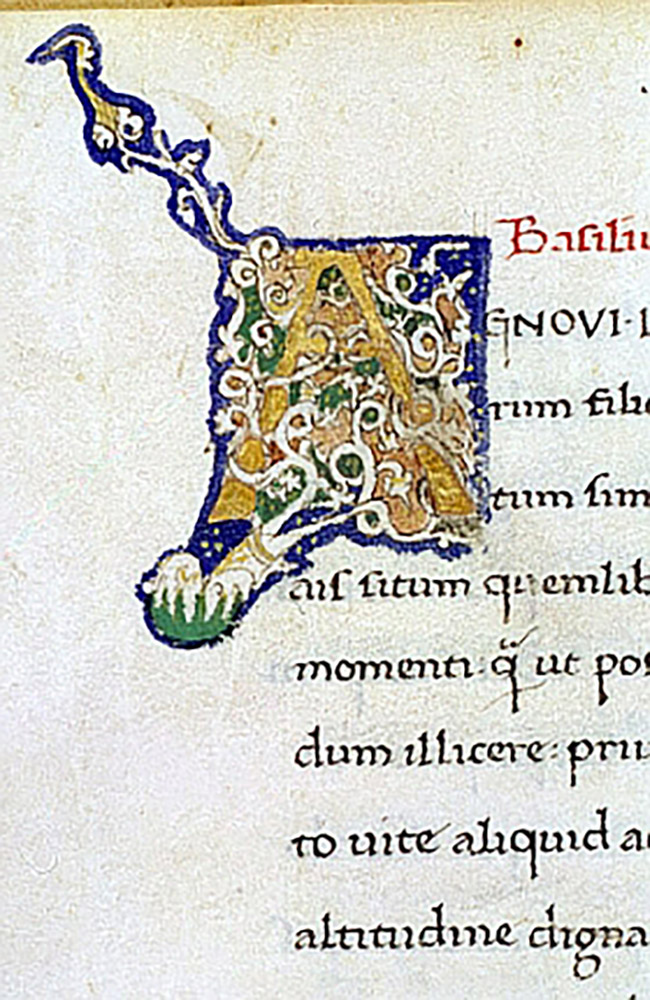 Basiliu
AGNOVI·I
rum filio
tum sim
ais situm quemlib
momenti: q̃ ut pos
dum illicere: priu
to uite aliquid ac
altitudine digna